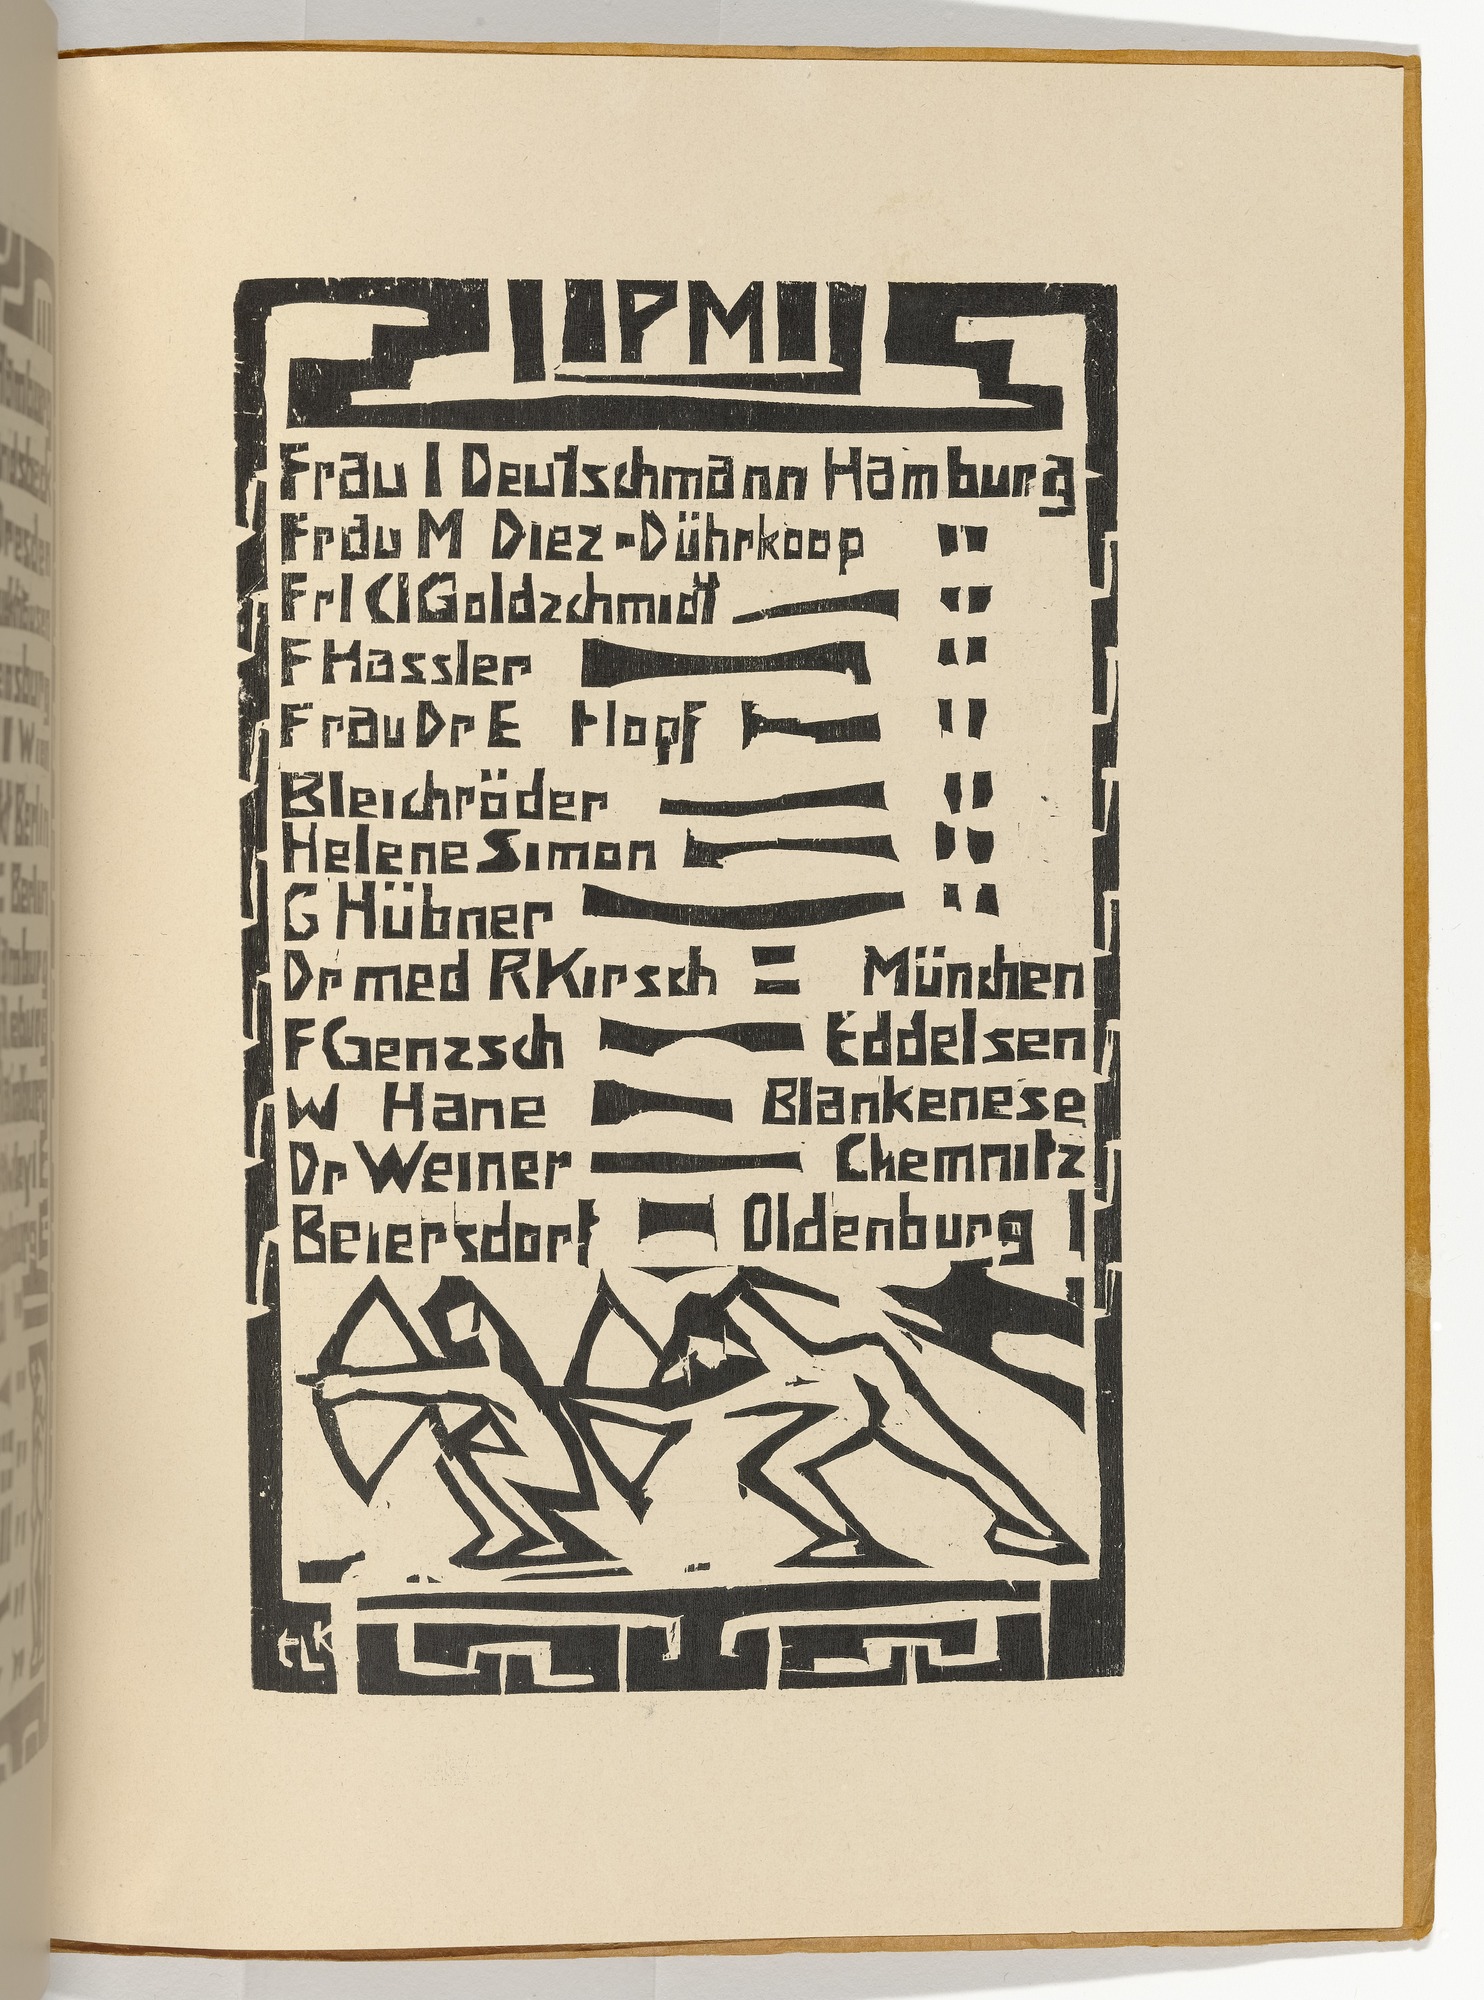 PM
Frau I Deutschmann Hamburg
Frau M Diez-Dührkoop "
Frl Cl Goldzchmidt "
F Hassler "
Frau Dr E Hopf "
Bleichröder "
Helene Simon "
G Hübner "
Dr med R Kirsch = München
F Genzsch Eddelsen
W Hane Blankenese
Dr Weiner Chemnitz
Beiersdorf Oldenburg I
ELK